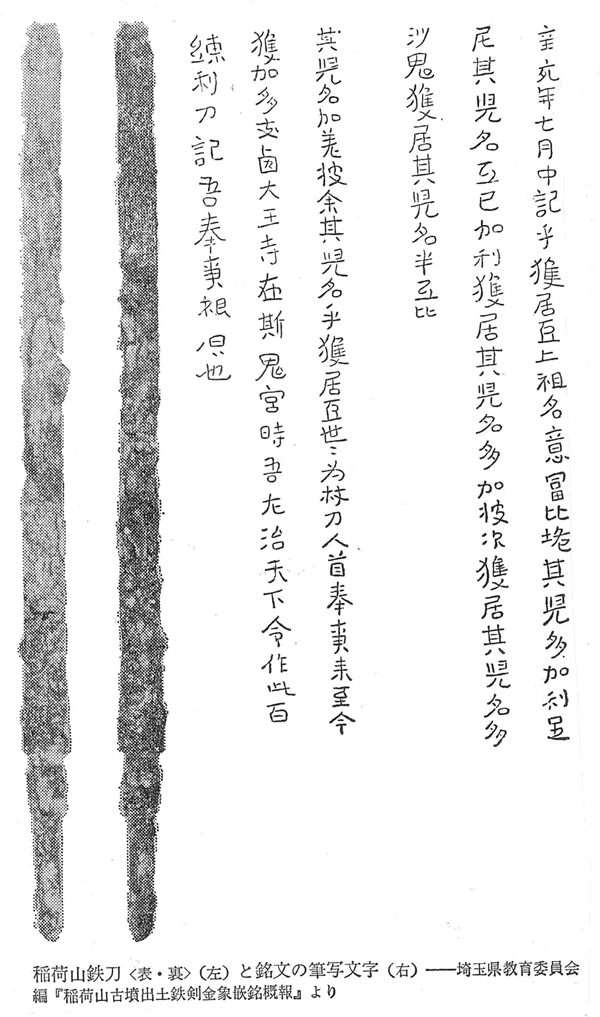 辛亥年七月中記乎獲居臣上祖名意冨比垝其児多加利足
尼其児名弖已加利獲居其児名多加披次獲居其児名多
沙鬼獲居其児名半弖比
其児名加差披余其児名乎獲居臣世々為杖刀人首奉事来至今
獲加多支鹵大王寺在斯鬼宮時吾左治天下令作此百
練利刀記吾奉事根原也
稲荷山鉄刀〈表・裏〉(左)と銘文の筆写文字(右)――埼玉県教育委員会
編『稲荷山古墳出土鉄剣金象嵌銘概報』より